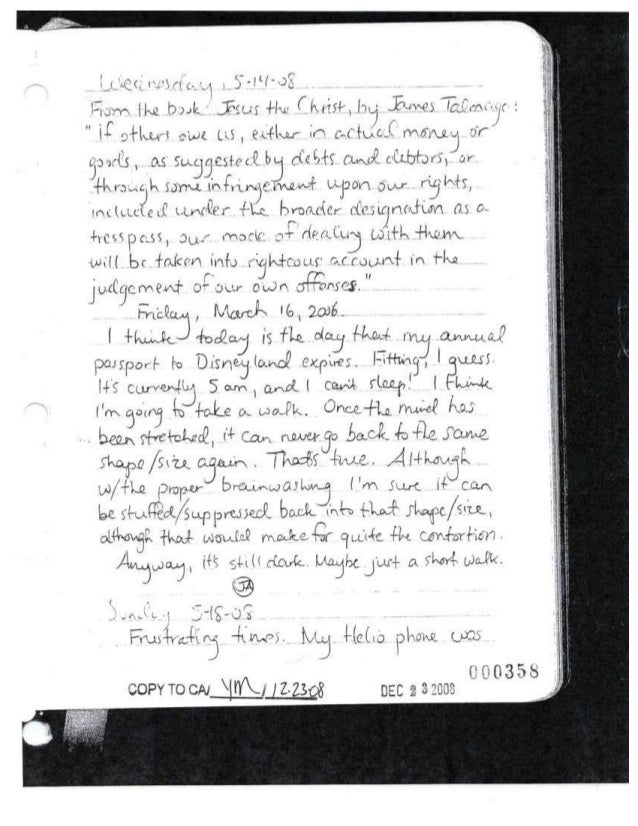 Wednesday, 5-14-08
From the book Jesus the Christ, by James Talmage:
"if others owe us, either in actual money or
goods, as suggested by debts and debtors, or
through some infringement upon our rights,
included under the broader designation as a
tresspass, our mode of dealing with them
will be taken into righteous account in the
judgement of our own offenses."
Friday, March 16, 2006.
I think today is the day that my annual
passport to Disneyland expires. Fitting, I guess.
It's currently 5 am, and I can't sleep! I think
I'm going to take a walk. Once the mind has
been stretched, it can never go back to the same
shape/size again. That's true. Although
w/the proper brainwashing I'm sure it can
be stuffed/suppressed back into that shape/size,
although that would make for quite the contortion.
Anyway, it's still dark. Maybe just a short walk.
JA
Sunday 5-18-08
Frustrating times. My Helio phone was
000358
COPY TO CA/ YM / 12-23-08 DEC 23 2008